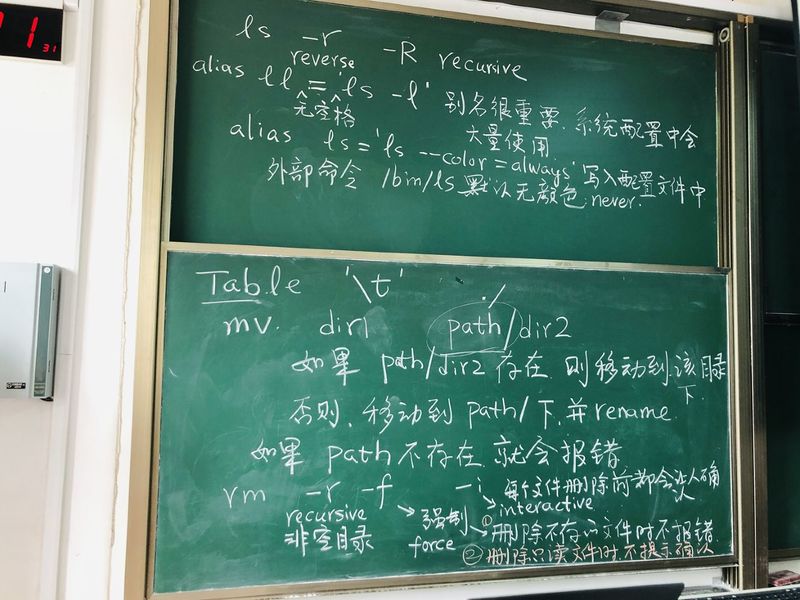 1 31
ls -r -R recursive
reverse
alias ll = 'ls -l' 别名很重要, 系统配置中会
无空格 大量使用
alias ls = 'ls --color=always' 写入配置文件中
外部命令 /bin/ls 默认无颜色 never.
Table '\t'
mv. dir1 path/dir2
如果 path/dir2 存在 则移动到该目录
下.
否则, 移动到 path/下, 并 rename
如果 path 不存在, 就会报错
rm -r -f -i 每个文件删除前都会 确
recursive 强制 interactive
非空目录 force ①删除不存 文件时不报错
②删除只读文件时, 不提示确认